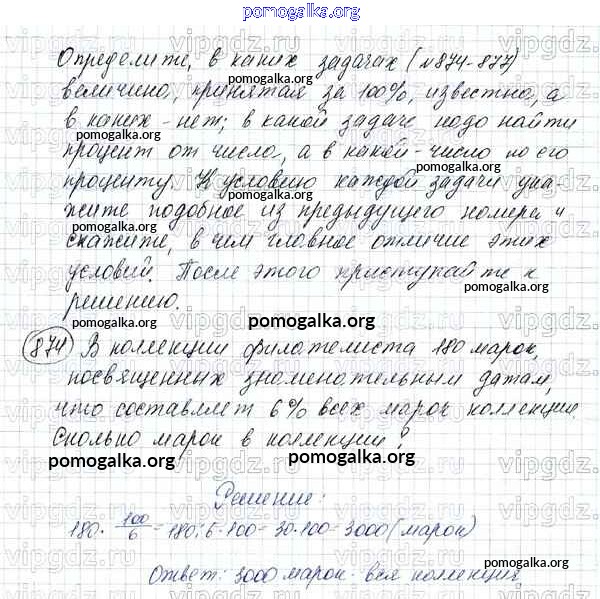 pomogalka.org
Определите, в каких задачах (№874-877)
величина, принятая за 100%, известна, а
в каких - нет; в какой задаче надо найти
процент от числа, а в какой - число по его
проценту. К условию каждой задачи ука-
жите подобное из предыдущего номера и
скажите, в чем главное отличие этих
условий. После этого приступайте к
решению.
pomogalka.org
874 В коллекции филателиста 180 марок,
посвященных знаменательным датам,
что составляет 6% всех марок коллекции.
Сколько марок в коллекции?
pomogalka.org pomogalka.org
Решение:
180 · 100/6 = 180:6·100 = 30·100 = 3000 (марок)
Ответ: 3000 марок - вся коллекция